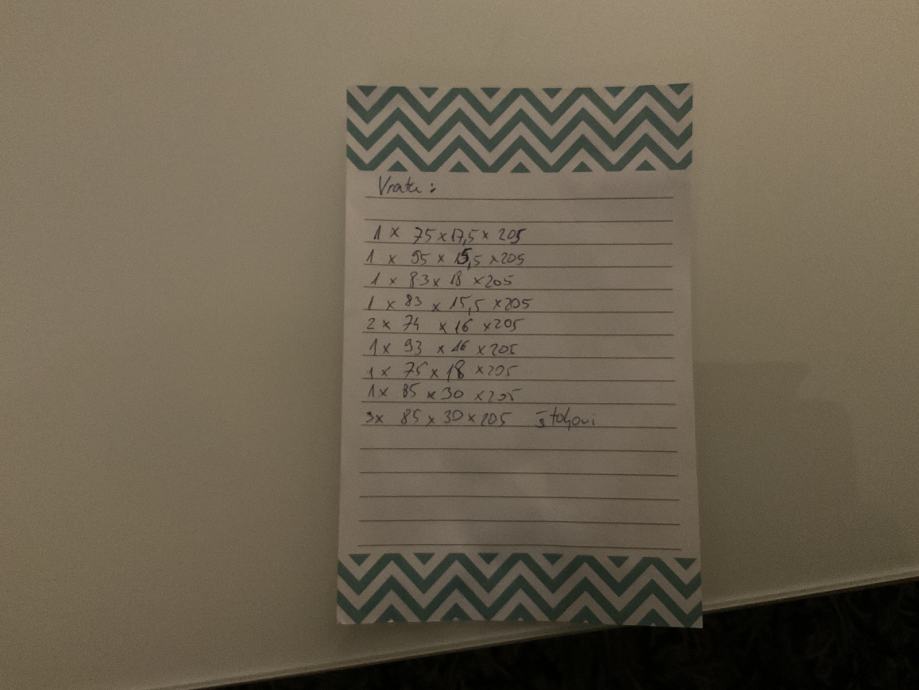 Vrata :
1 x 75 x 17,5 x 205
1 x 95 x 15,5 x 205
1 x 83 x 18 x 205
1 x 83 x 15,5 x 205
2 x 74 x 16 x 205
1 x 93 x 16 x 205
1 x 75 x 18 x 205
1 x 85 x 30 x 205
3 x 85 x 30 x 205 štokovi